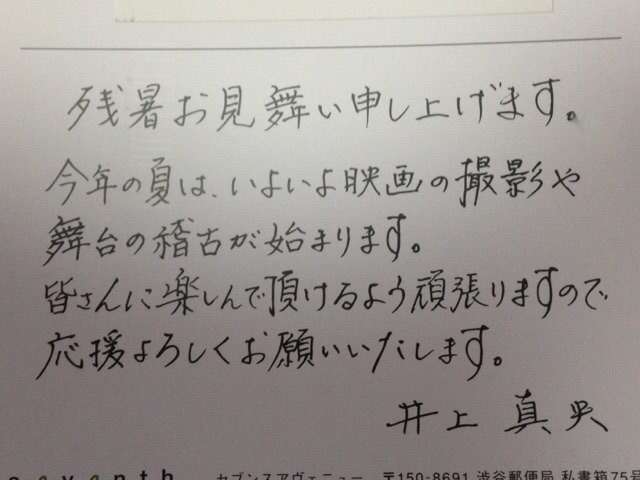 残暑お見舞い申し上げます。
今年の夏は、いよいよ映画の撮影や
舞台の稽古が始まります。
皆さんに楽しんで頂けるよう頑張りますので
応援よろしくお願いいたします。
井上真央
seventh セブンスアヴェニュー 〒150-8691 渋谷郵便局 私書箱75号